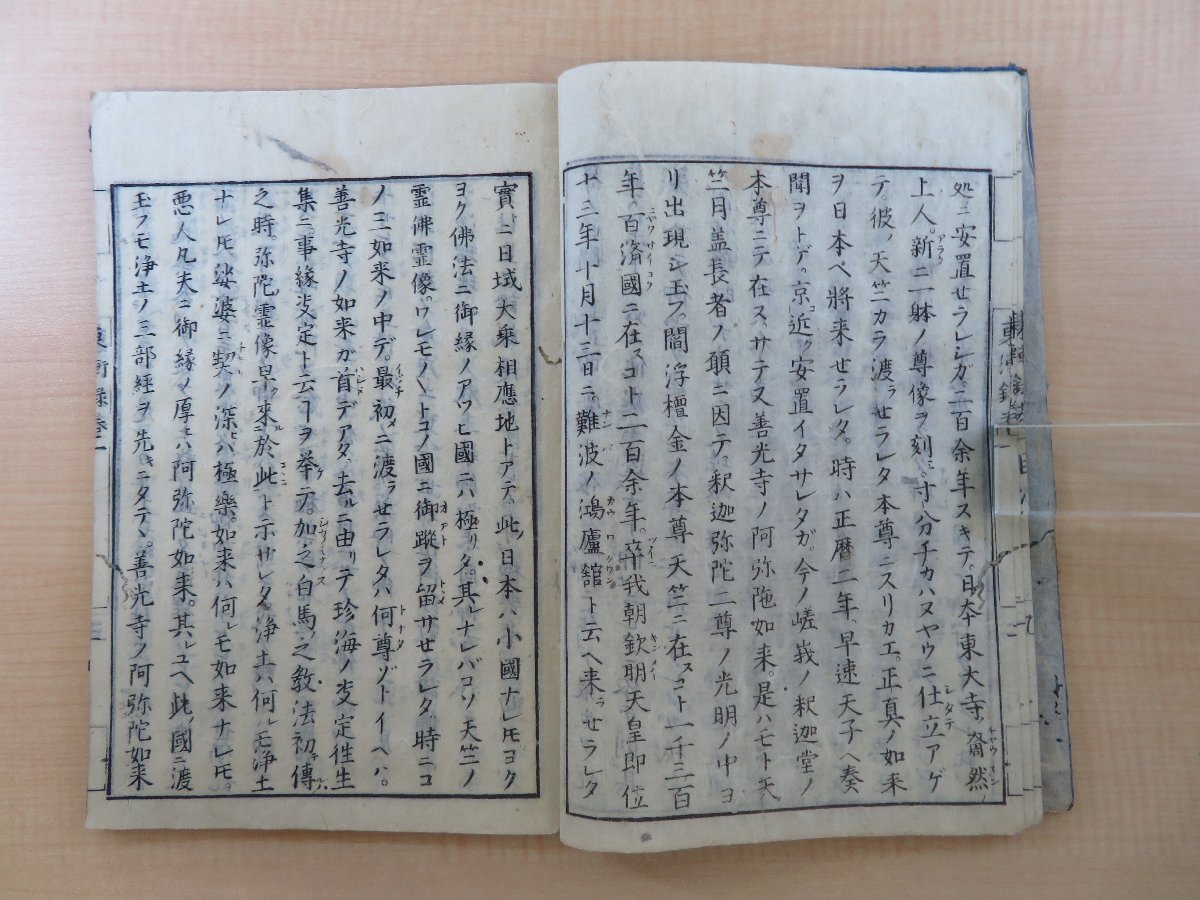 処ニ安置せラレシガ。二百余年スキテ。日本東大寺ノ奝然
上人。新ニ一躰ノ尊像ヲ刻ミ。寸分チカハヌヤウニ仕立アゲ
テ。彼ノ天竺カラ渡ラせラレタ本尊ニスリカエ。正真ノ如来
ヲ日本ヘ將来せラレタ。時ハ正暦二年。早速天子ヘ奏
聞ヲトゲ。京近ク安置イタサレタガ。今ノ嵯峩ノ釈迦堂ノ
本尊ニテ在ス。サテ又善光寺ノ阿弥陁如来。是ハモト天
竺月盖長者ノ願ニ因テ。釈迦弥陀二尊ノ光明ノ中ヨ
リ出現シ玉フ。閻浮檀金ノ本尊天竺ニ在スコト一千三百
年。百済國ニ在スコト二百余年。卒我朝欽明天皇即位
十三年十月十三日ニ。難波ノ鴻廬舘ト云ヘ来ラせラレタ
實ニ日域大乗相應地トアテ。此ノ日本ハ小國ナレ𪜈ヨク
ヨク佛法ニ御縁ノアツヒ國ニハ極リタ。其レナレバコソ天竺ノ
霊佛霊像。ワレモ〳〵トコノ國ニ御蹤ヲ留サせラレタ。時ニコ
ノ三如来ノ中デ。最初ニ渡ラせラレタハ何尊ゾトイヘハ。
善光寺ノ如来ガ首デアタ。去ルニ由リテ珍海ノ决定往生
集ニ。事縁决定ト云ヿヲ举テ。加之白馬之教法初テ傳ルノ
之時。弥陀霊像早ク來於此ト示サレタ。浄土ハ何レモ浄土
ナレ𪜈。娑婆ニ契ノ深ヒハ極樂。如来ハ何レモ如来ナレ𪜈。
悪人凡夫ニ御縁ノ厚ヒハ阿弥陀如来。其レユヘ此ノ國ニ渡
玉フモ浄土ノ三部経ヲ先キニタテヽ。善光寺ノ阿弥陀如来